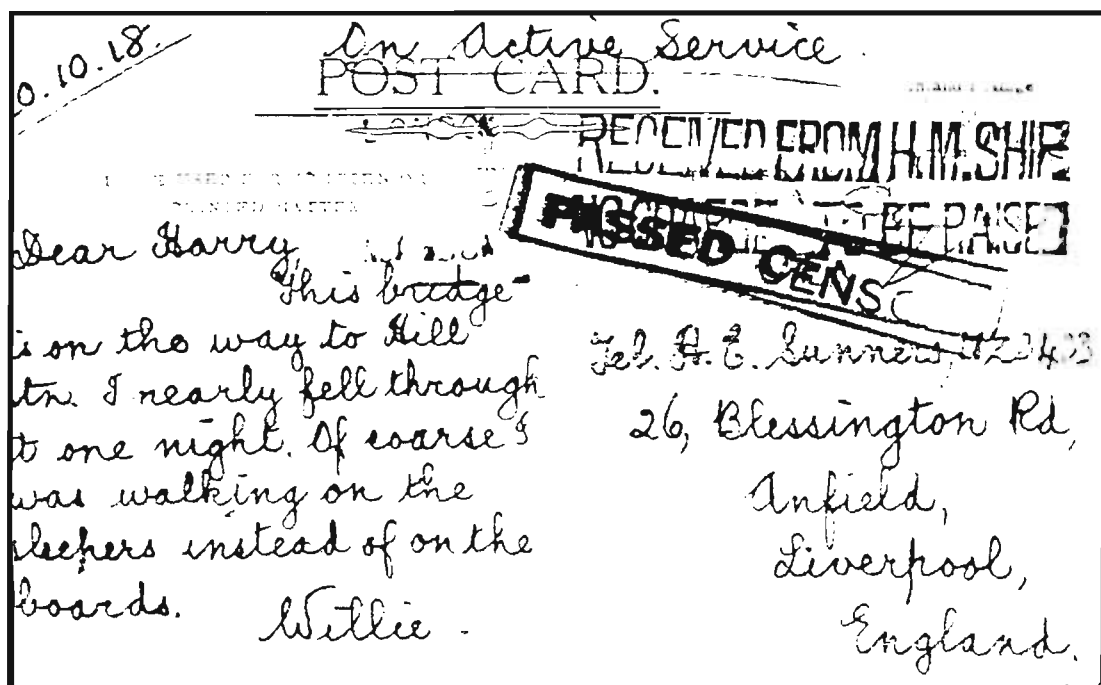 0.10.18.
On Active Service.
POST CARD.
RECEIVED FROM H.M. SHIP
NO CHARGE TO BE RAISED
PASSED CENSO
Dear Harry,
This bridge
is on the way to Hill
tn. I nearly fell through
t one night. Of coarse I
was walking on the
sleepers instead of on the
boards.
Willie.
Tel. H. E. Sunners
26, Blessington Rd,
Anfield,
Liverpool,
England.